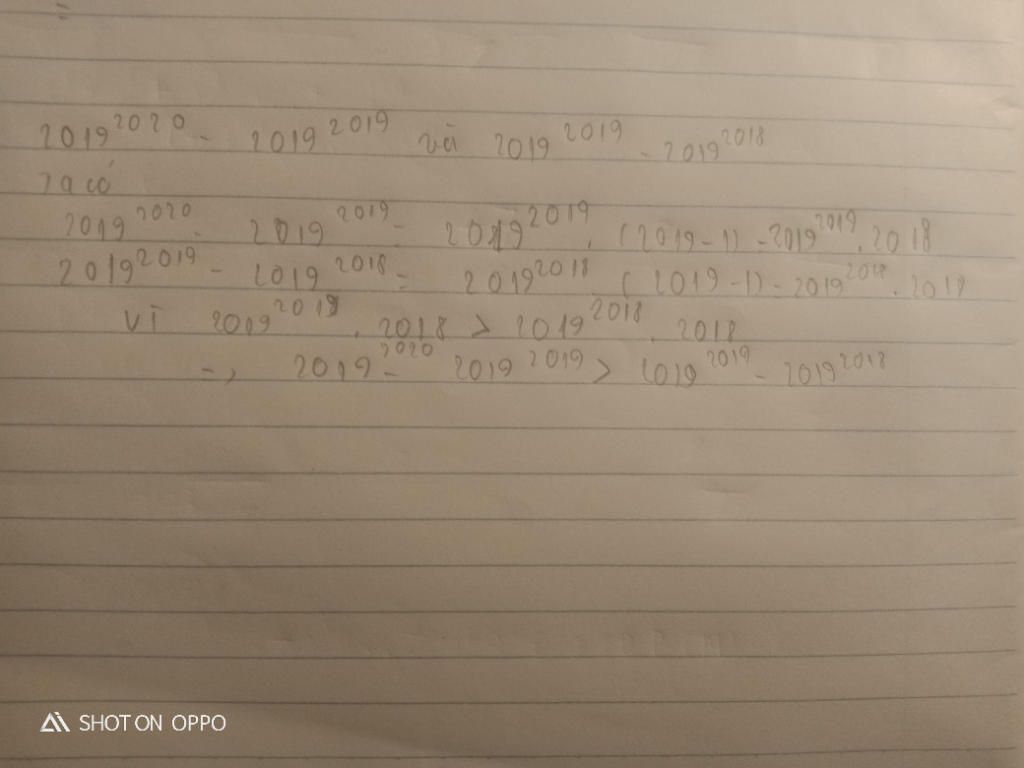 2019²⁰²⁰ - 2019²⁰¹⁹ và 2019²⁰¹⁹ - 2019²⁰¹⁸
Ta có
2019²⁰²⁰ - 2019²⁰¹⁹ = 2019²⁰¹⁹ . (2019-1) = 2019²⁰¹⁹ . 2018
2019²⁰¹⁹ - 2019²⁰¹⁸ = 2019²⁰¹⁸ . (2019-1) = 2019²⁰¹⁸ . 2018
Vì 2019²⁰¹⁹ . 2018 > 2019²⁰¹⁸ . 2018
=> 2019²⁰²⁰ - 2019²⁰¹⁹ > 2019²⁰¹⁹ - 2019²⁰¹⁸
SHOT ON OPPO